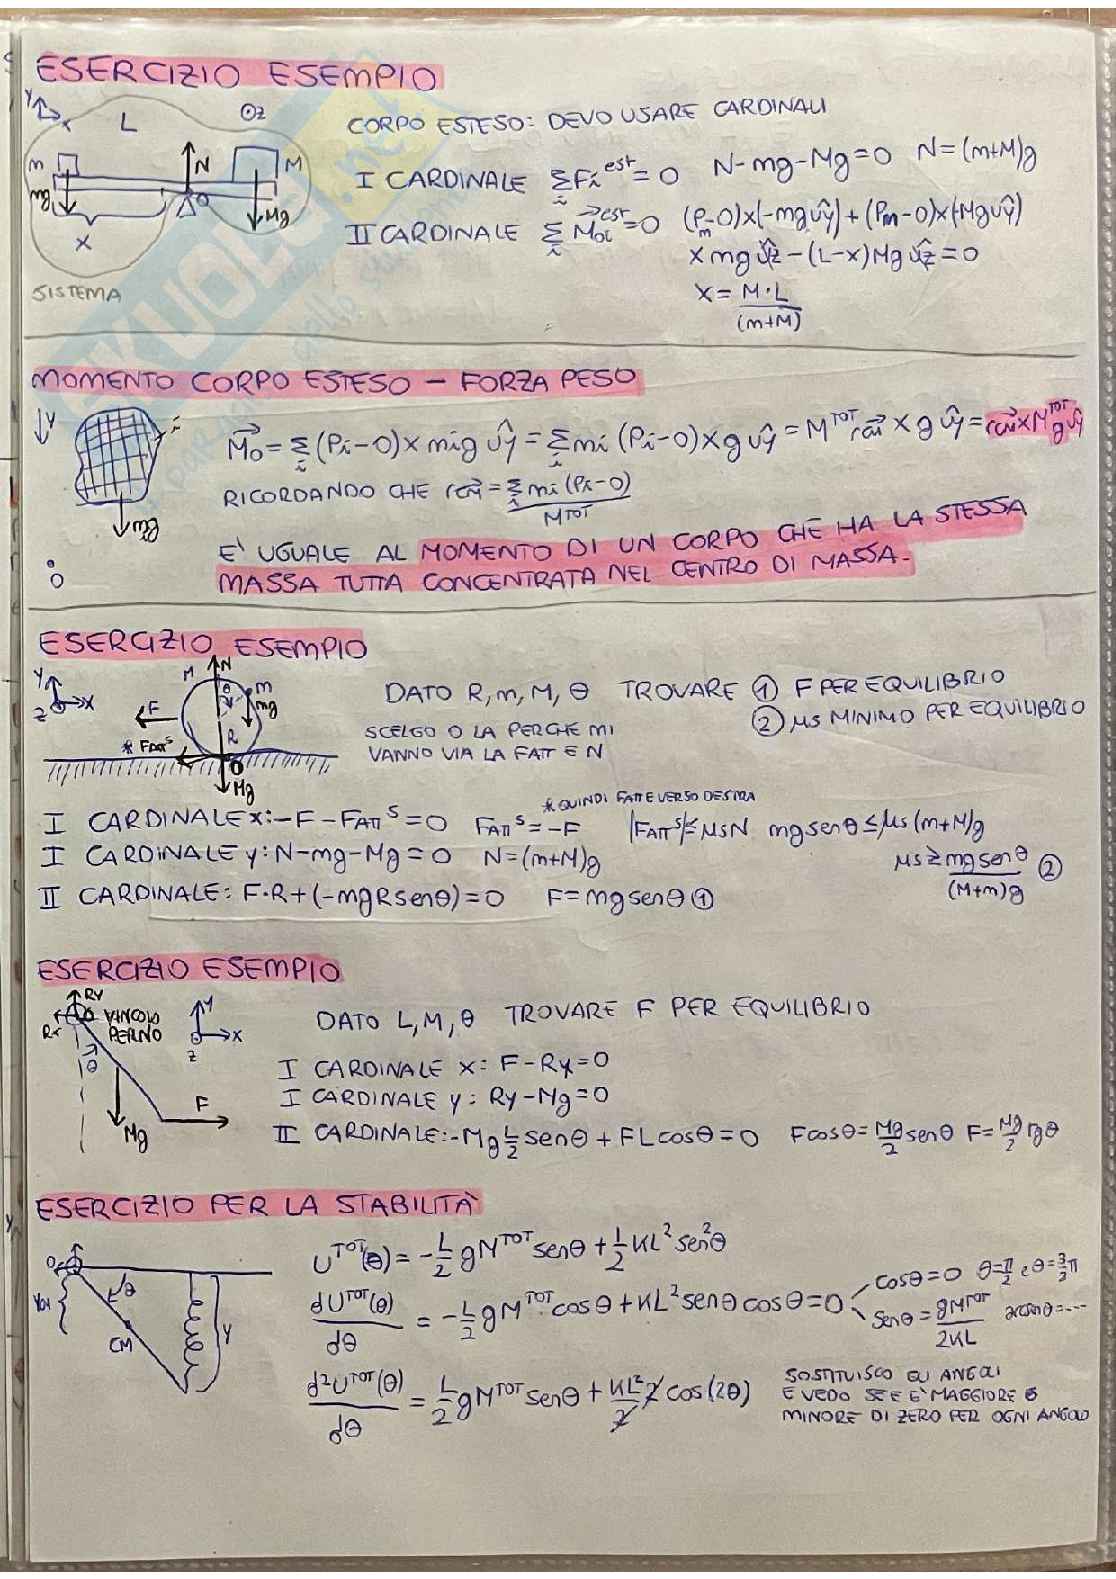 ESERCIZIO ESEMPIO
Y
x
L
⊙z
m
N
M
mg
O
Mg
x
SISTEMA
CORPO ESTESO: DEVO USARE CARDINALI
I CARDINALE ΣFi^est=0 N-mg-Mg=0 N=(m+M)g
II CARDINALE ΣMoi^est=0 (Pm-O)x(-mgûy)+(Pm-O)x(-Mgûy)
x mg ûz-(L-x)Mg ûz=0
x= M·L/(m+M)
MOMENTO CORPO ESTESO - FORZA PESO
Y
i
O
Mo=Σ(Pi-O)x mig ûy=Σmi(Pi-O)xg ûy=M^TOT rCM x g ûy=rCM x M^TOT g ûy
RICORDANDO CHE rCM= Σmi(Pi-O)/M^TOT
E' UGUALE AL MOMENTO DI UN CORPO CHE HA LA STESSA
MASSA TUTTA CONCENTRATA NEL CENTRO DI MASSA.
ESERCIZIO ESEMPIO
Y
x
z
M
N
θ
m
mg
F
R
* FATT^S
O
Mg
DATO R, m, M, θ TROVARE ① F PER EQUILIBRIO
② μs MINIMO PER EQUILIBRIO
SCELGO O LA PERCHE MI
VANNO VIA LA FATT E N
* QUINDI FATT E VERSO DESTRA
I CARDINALE x:-F-FATT^S=0 FATT^S=-F |FATT^S|≤μsN mgsenθ≤μs(m+M)g
I CARDINALE y:N-mg-Mg=0 N=(m+M)g μs≥ mgsenθ/(M+m)g ②
II CARDINALE: F·R+(-mgRsenθ)=0 F=mgsenθ ①
ESERCIZIO ESEMPIO
Ry
VINCOLO
PERNO
Rx
θ
Mg
F
Y
x
z
DATO L, M, θ TROVARE F PER EQUILIBRIO
I CARDINALE x: F-Rx=0
I CARDINALE y: Ry-Mg=0
II CARDINALE:-Mg L/2 senθ+FLcosθ=0 Fcosθ= Mg/2 senθ F= Mg/2 tgθ
ESERCIZIO PER LA STABILITÀ
O
θ
CM
Y
U^TOT(θ)=-L/2 gM^TOT senθ+1/2 KL²sen²θ
dU^TOT(θ)/dθ=-L/2 gM^TOT cosθ+KL²senθcosθ=0
cosθ=0 θ=π/2 e θ=3/2π
senθ= gM^TOT/2KL arcsenθ=---
d²U^TOT(θ)/dθ= L/2 gM^TOT senθ+ KL²/2 2 cos(2θ)
SOSTITUISCO GLI ANGOLI
E VEDO SE E E' MAGGIORE O
MINORE DI ZERO PER OGNI ANGOLO